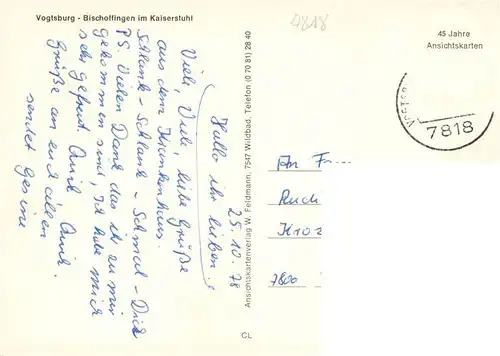 Vogtsburg - Bischoffingen im Kaiserstuhl
4818
45 Jahre
Ansichtskarten
7818
25.10.78
Hallo ihr lieben.
Viele, Viele, liebe Grüße
aus dem Krankenhaus.
Schlank - Schlank - Schmal - Dick
PS. Vielen Dank das ihr zu mir
gekommen seid, Ich habe mich
sehr gefreut. Quik Quik.
Grüße an euch allen
sendet Gesine
Ansichtskartenverlag W. Feldmann, 7547 Wildbad, Telefon (0 70 81) 28 40
CL
An F....
Ruch
Kroz
7800